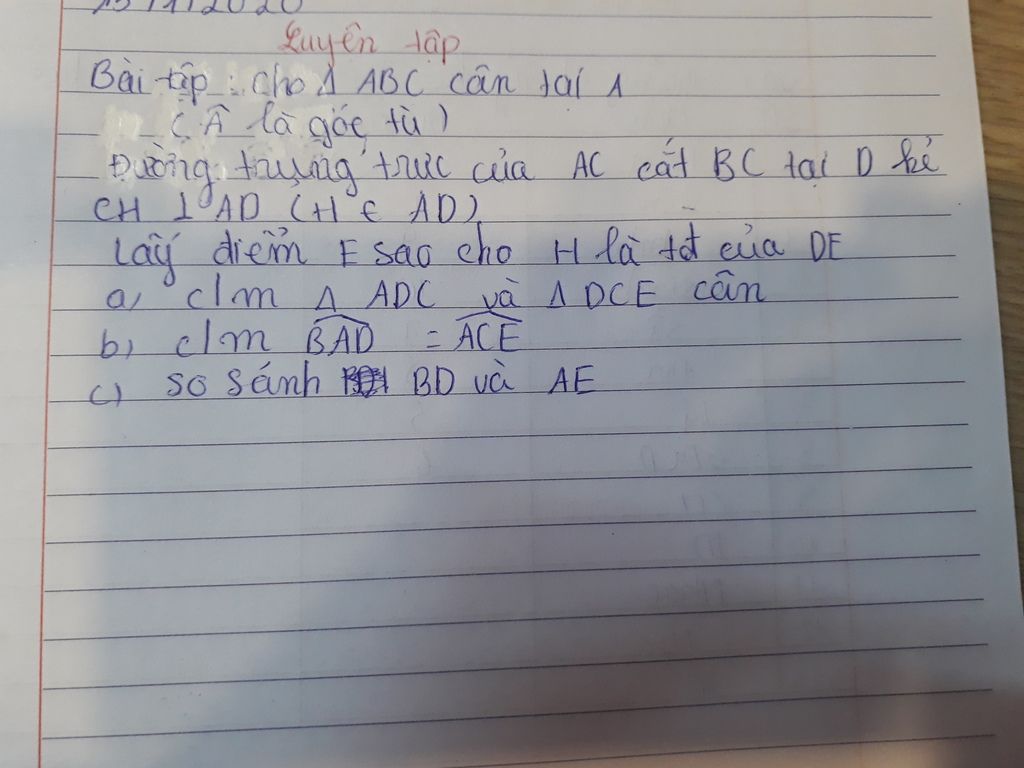 13/1/2020
Luyện tập
Bài tập : cho Δ ABC cân tại A
( Â là góc tù )
Đường trung trực của AC cắt BC tại D kẻ
CH ⊥ AD (H ∈ AD)
Lấy điểm E sao cho H là tđ của DE
a, c/m Δ ADC và Δ DCE cân
b, c/m BAD = ACE
c) so sánh BD và AE